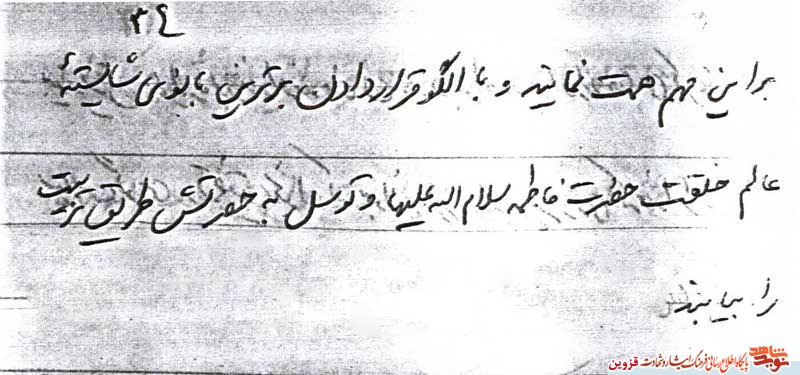 ٣٤
بر این مهم همت نمایند و با الگو قرار دادن برترین بانوی شایستهٔ
عالم خلقت حضرت فاطمه سلام الله علیها و توسل به حضرتش طریق تربیت
را بیابند
نوید شاهد
پایگاه اطلاع رسانی فرهنگ ایثار و شهادت قزوین